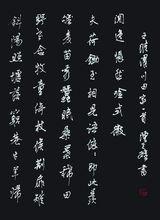 斜陽照墟落窮巷牛羊歸
野老念牧童倚杖候荊扉
雉雊麥苗秀蠶眠桑葉稀田
夫荷鋤至相見語依依即此羨
閒逸悵然吟式微
王維渭川田家一首